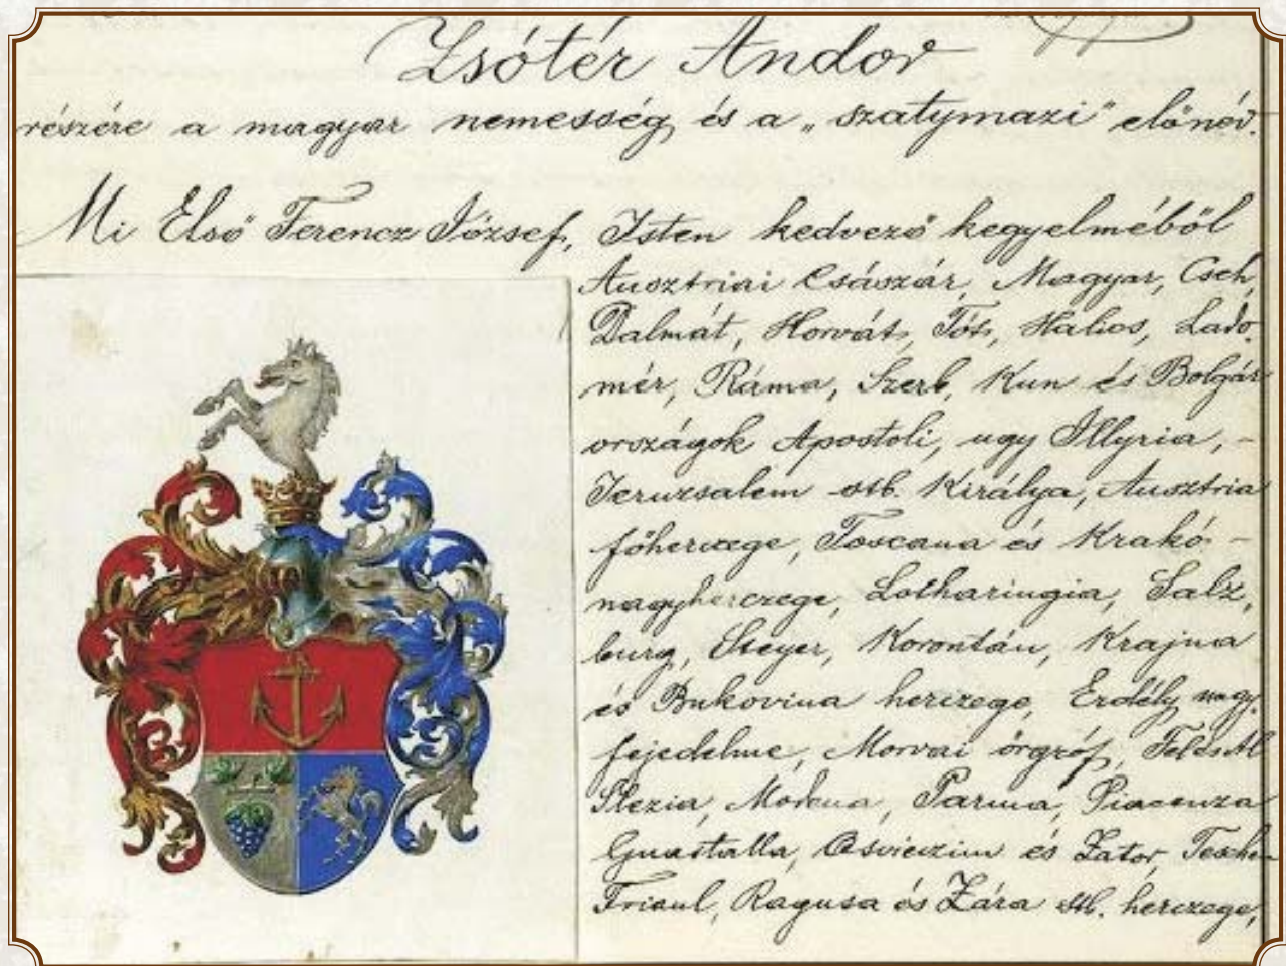 Zsótér Andor
részére a magyar nemesség és a „szatymazi" előnév.
Mi Első Ferencz József, Isten kedvező kegyelméből
Ausztriai Császár, Magyar, Cseh,
Dalmát, Horvát, Tót, Halics, Lado-
mér, Ráma, Szerb, Kun és Bolgár
országok Apostoli, ugy Illyria, -
Jeruzsalem stb. Királya, Ausztria
főherczege, Toscana és Krakó -
nagyherczege, Lotharingia, Salz,
burg, Steyer, Korontán, Krajna
és Bukovina herczege, Erdély nagy-
fejedelme, Morvai őrgróf, Felső Al
Slezia, Modena, Parma, Piacenza
Guastalla, Osvieczim és Zator, Teschen
Friaul, Ragusa és Zára stb. herczege,